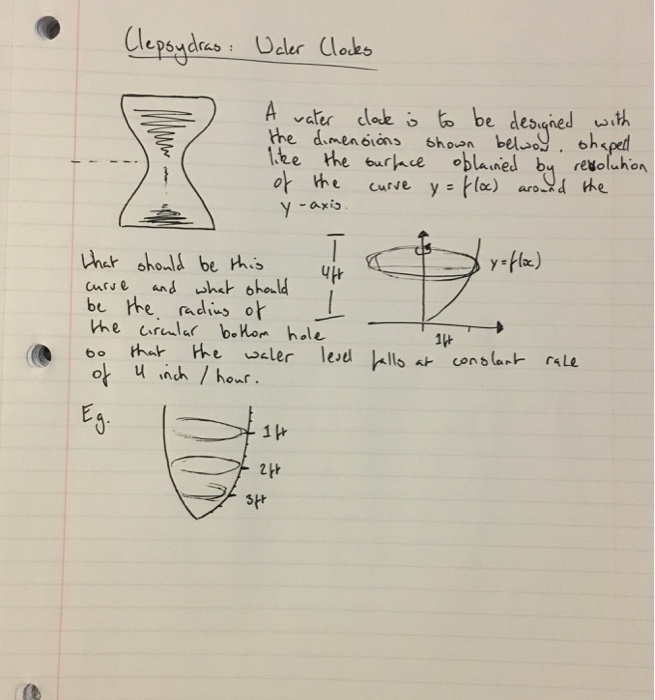 Clepsydras : Water Clocks
A water clock is to be designed with
the dimensions shown below, shaped
like the surface obtained by revolution
of the curve y = f(x) around the
y-axis.
What should be this
curve and what should
be the radius of
the circular bottom hole
so that the water level falls at constant rate
of 4 inch / hour.
4ft
y=f(x)
1ft
Eg.
1ft
2ft
3ft